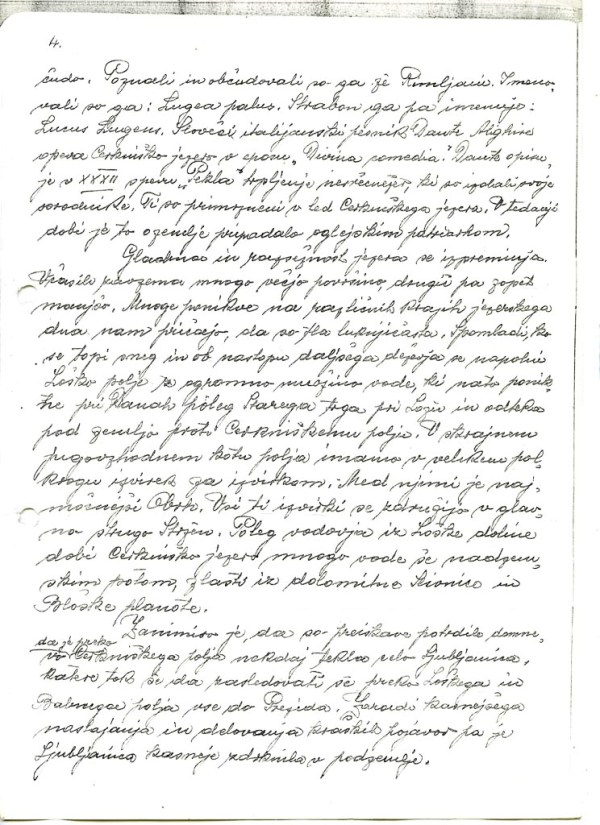 4.
čudo. Poznali in občudovali so ga že Rimljani. Imeno-
vali so ga: Lugea palus. Strabon ga pa imenuje:
Lucus Lugens. Sloveči italijanski pesnik Dante Alighire
opeva Cerkniško jezero v eposu „Divina comedia." Dante opisu
je v XXXII spevu „Pekla" trpljenje nesrečnežev, ki so izdali svoje
sorodnike. Ti so primrznjeni v led Cerkniškega jezera. V tedanji
dobi je to ozemlje pripadalo oglejskim patriarhom.
Gladina in razsežnost jezera se izpreminja.
Včasih zavzema mnogo večjo površino, drugič pa zopet
manjšo. Mnoge ponikve na različnih krajih jezerskega
dna nam pričajo, da so tla luknjičasta. Spomladi, ko
se topi sneg in ob nastopu daljšega deževja se napolni
Loško polje z ogromno množino vode, ki nato ponik-
ne pri Danah poleg Starega trga pri Ložu in odteka
pod zemljo proti Cerkniškemu polju. V skrajnem
jugovzhodnem kotu polja imamo v velikem pol-
krogu izvirek za izvirkom. Med njimi je naj-
močnejši Obrh. Vsi ti izvirki se združijo v glav-
no strugo Stržen. Poleg vodovja iz Loške doline
dobi Cerkniško jezero mnogo vode še nadzem-
skim potom, zlasti iz dolomitne Slivnice in
Bloške planote.
Zanimivo je, da so preiskave potrdile domne-
vo da je preko Cerkniškega polja nekdaj tekla celo Ljubljanica,
katere tok se da zasledovati še preko Loškega in
Babnega polja vse do Prezida. Zaradi kasnejšega
nastajanja in delovanja kraških pojavov pa je
Ljubljanica kasneje zdrknila v podzemlje.